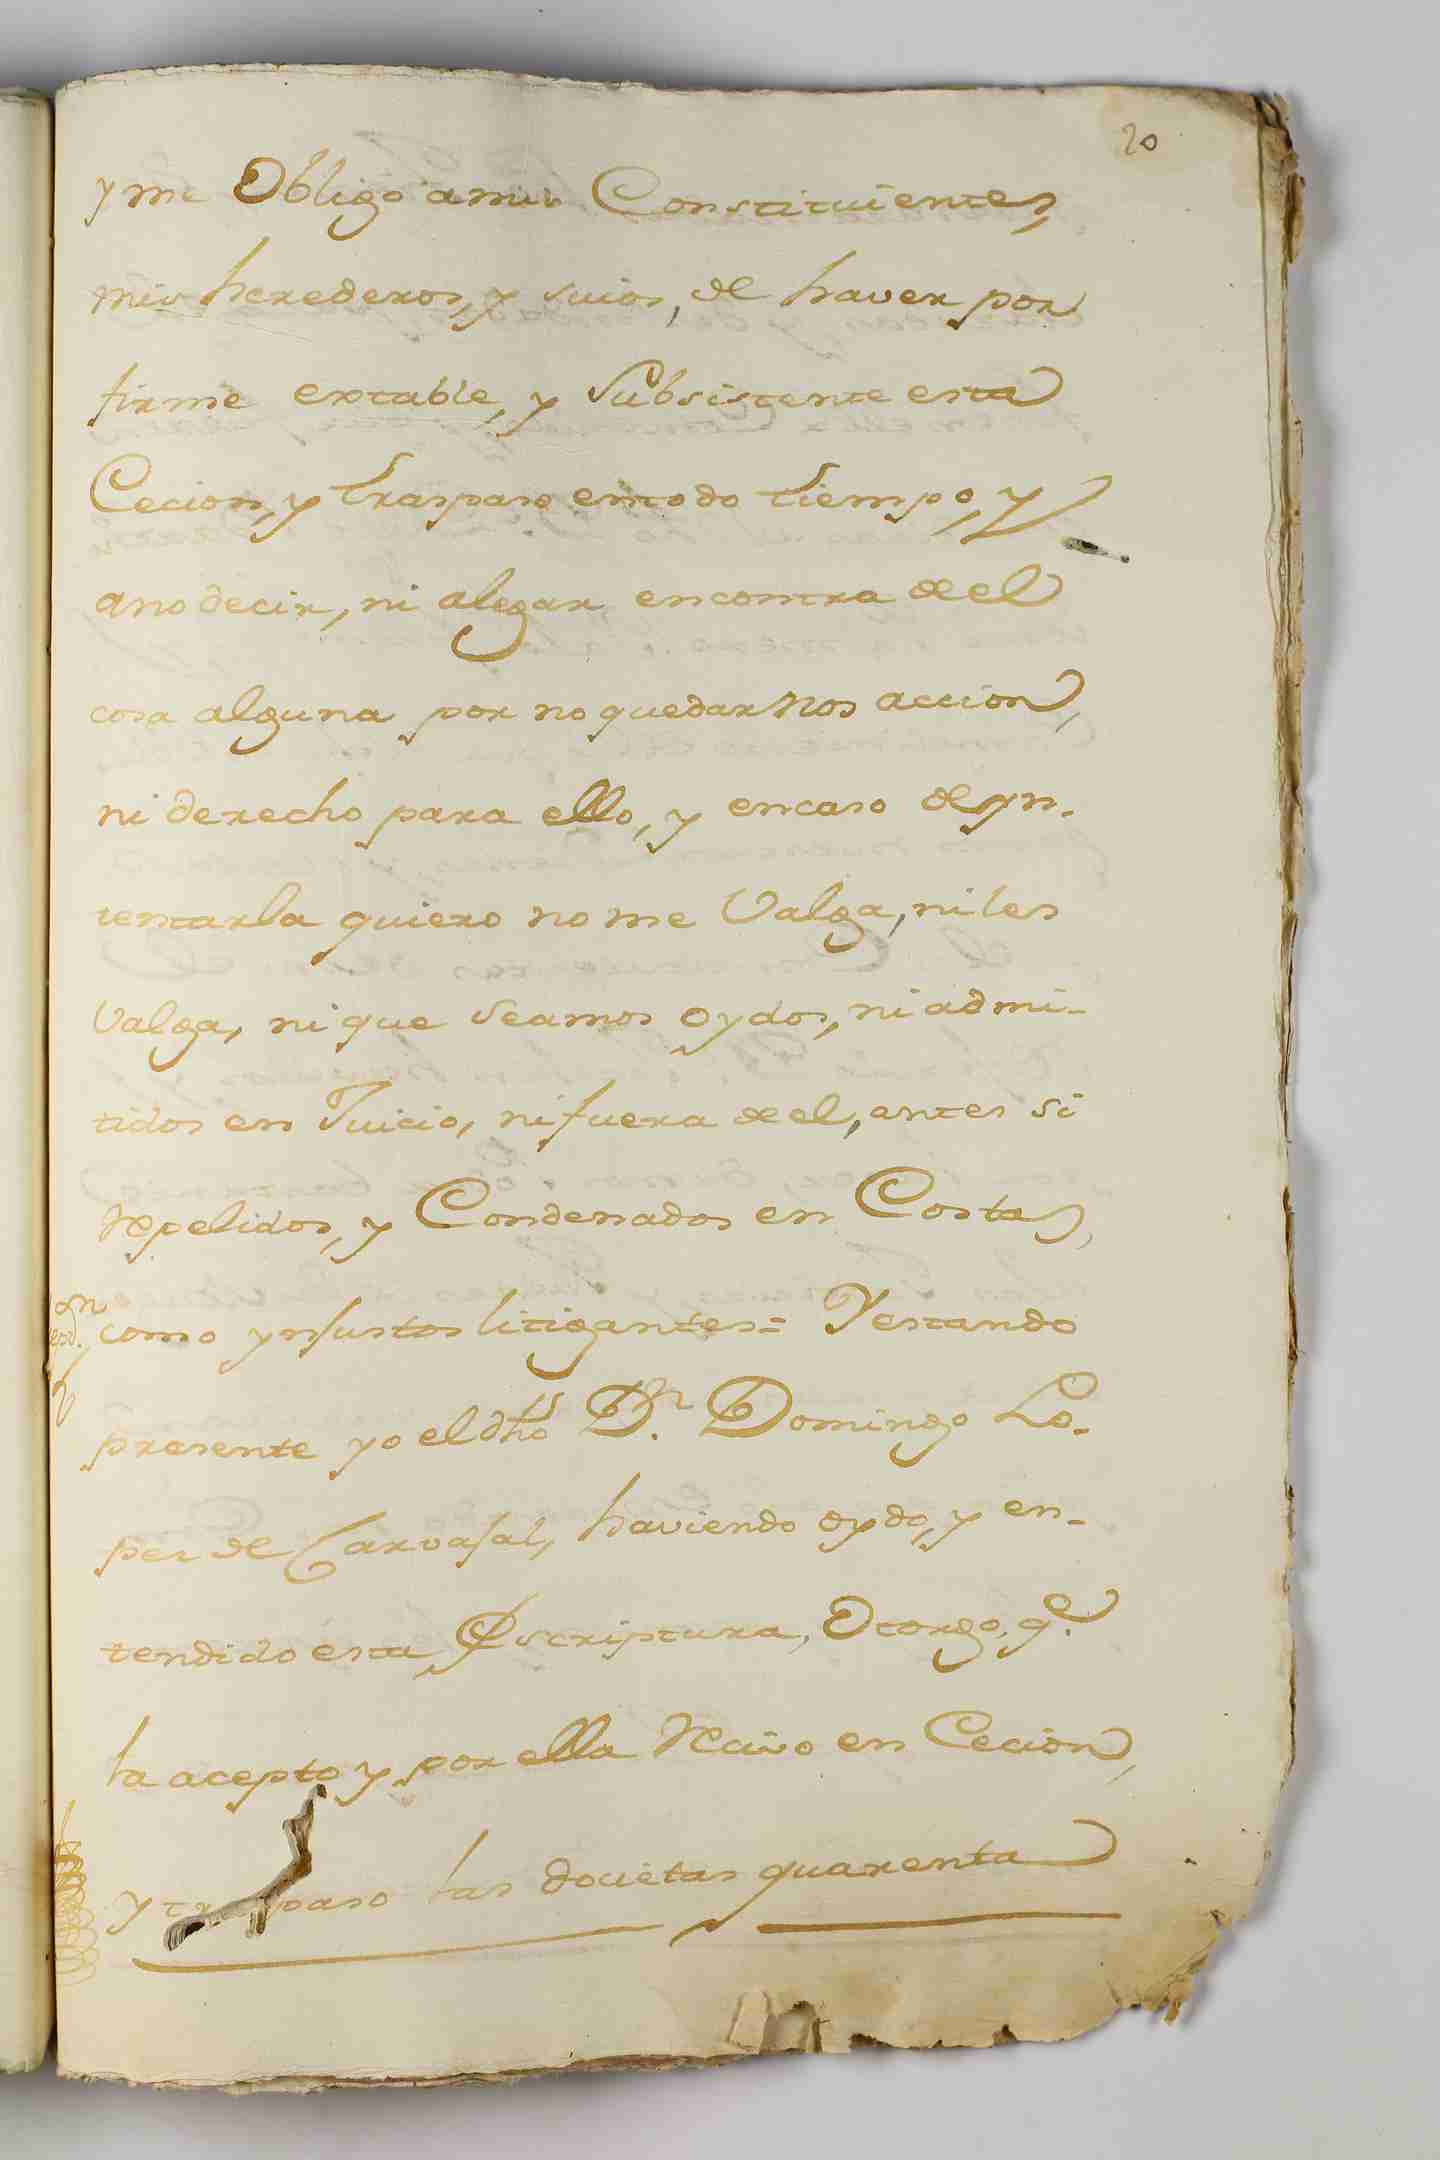 20
y me Obligo a mis Constituientes,
mis herederos, y suios, de haver por
firme extable, y Subsistente esta
Cecion, y traspaso entodo tiempo, y
ano decir, ni alegar encontra de el
cosa alguna por no quedarnos accion,
ni derecho para ello, y encaso de yn-
tentarla quiero no me Valga, ni les
Valga, ni que seamos oydos, ni admi-
tidos en Juicio, ni fuera de el, antes si
repelidos, y Condenados en Costas,
como ynjustos litigantes = Y estando
presente yo el dho Dn. Domingo Lo-
pez de Carvajal, haviendo oydo, y en-
tendido esta Escriptura, Otorgo, qe.
la acepto y por ella recivo en Cecion,
y traspaso las docietas quarenta